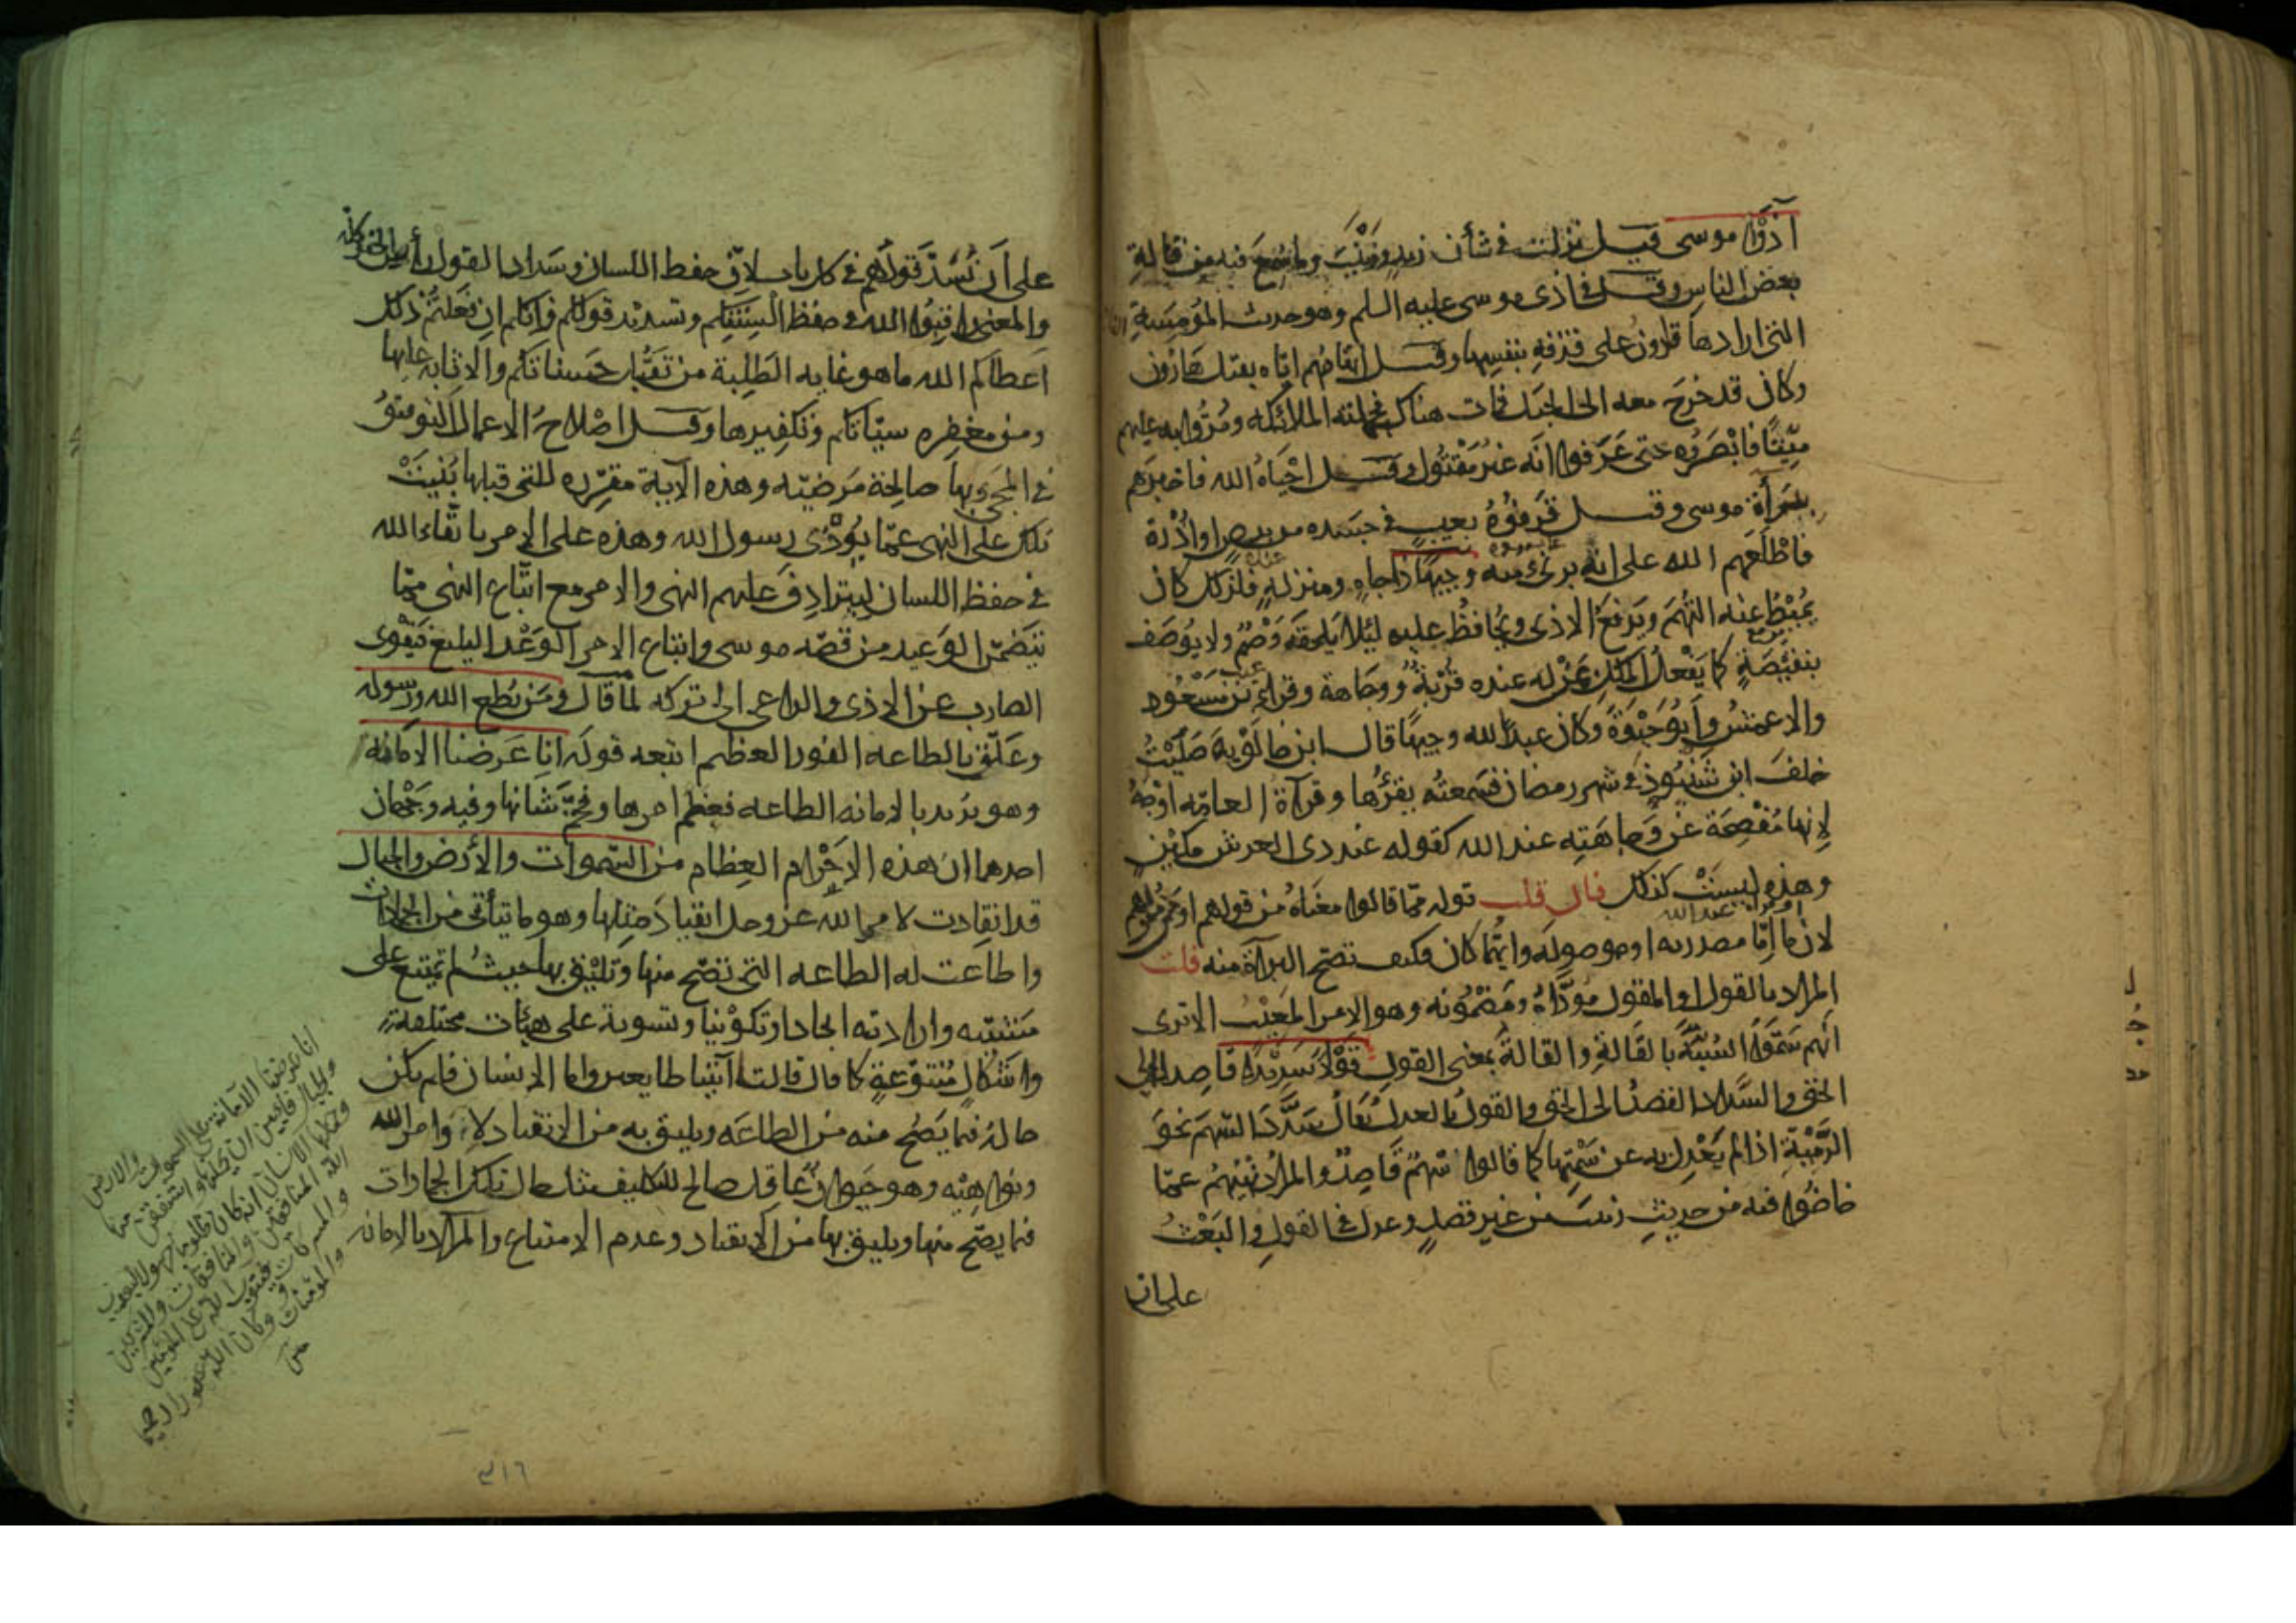 آذوا موسى قيل نزلت في شأن زيد وزينب وما سمع فيه من قالة
بعض الناس وقيل في اذى موسى عليه السلم هو حديث المومسة
التي ارادها قارون على قذفه بنفسها وقيل اتهامهم اياه بقتل هارون
وكان قد خرج معه الى الجبل فمات هناك فحملته الملائكة ومروا به عليهم
ميتا فابصروه حتى عرفوا انه غير مقتول وقيل احياه الله فاخبرهم
ببرأة موسى وقيل قرفوه بعيب في جسده من برص او أدرة
فاطلعهم الله على انه برئ منه وجيها ذا جاه ومنزلة عنده فلذلك كان
يميط عنه التهم ويدفع الاذى ويحافظ عليه ليلا يلحقه وصم ولا يوصف
بنقيصة كما يفعل الملك بمن له عنده قربة ووجاهة وقرأ ابن مسعود
والاعمش وأبو حيوة وكان عبدا لله وجيها قال ابن خالويه صليت
خلف ابن شنبوذ في شهر رمضان فسمعته يقرؤها وقرأة العامة اوجه
لانها مفصحة عن وجاهته عند الله كقوله عند ذي العرش مكين
وهذه ليست كذلك فان قلت قوله مما قالوا معناه من قولهم او من مقولهم
لان ما إما مصدرية او موصولة وايهما كان فكيف تصح البرآة منه قلت
المراد بالقول او المقول مؤداه ومضمونه وهو الامر المعيب الا ترى
أنهم سموا السبة بالقالة والقالة بمعنى القول قولا سديدا قاصدا الى
الحق والسداد القصد الى الحق والقول بالعدل يقال سدد السهم نحو
الرمية اذا لم يعدل به عن سمتها كما قالوا سهم قاصد والمراد نهيهم عما
خاضوا فيه من حديث زينب من غير قصد وعدل في القول والبعث
على ان
على أن يسد قولهم في كل باب لان حفظ اللسان وسداد القول رأس الخير كله
والمعنى راقبوا الله في حفظ ألسنتكم وتسديد قولكم فإنكم ان فعلتم ذلك
اعطاكم الله ما هو غاية الطلبة من تقبل حسناتكم والاثابة عليها
ومن مغفرة سيآتكم وتكفيرها وقيل اصلاح الاعمال التوفيق
في المجئ بها صالحة مرضية وهذه الآية مقررة للتي قبلها بنيت
تلك على النهي عما يؤذى رسول الله وهذه على الامر باتقاء الله
في حفظ اللسان ليترادف عليهم النهي والامر مع اتباع النهي مما
يتضمن الوعيد من قصة موسى واتباع الامر الوعد البليغ فيقوى
الصارف عن الاذى والداعي الى تركه لما قال ومن يطع الله ورسوله
وعلق بالطاعة الفوز العظيم اتبعه قوله انا عرضنا الامانة
وهو يريد بالامانة الطاعة فعظم امرها وفخم شانها وفيه وجهان
احدهما ان هذه الاجرام العظام من السموات والأرض والجبال
قد انقادت لامر الله عز وجل انقياد مثلها وهو ما يتأتى من الجمادات
واطاعت له الطاعة التي تصح منها وتليق بها حيث لم تمتنع على
مشيته وارادته ايجادا وتكوينا وتسوية على هيئات مختلفة
واشكال متنوعة كما قال قالتا آتينا طايعين واما الانسان فلم يكن
حاله فيما يصح منه من الطاعة ويليق به من الانقياد لاوامر الله
ونواهيه وهو حيوان عاقل صالح للتكليف مثل حال تلك الجمادات
فيما يصح منها ويليق بها من الانقياد وعدم الامتناع والمراد بالامانة
انا عرضنا الامانة على السموات والارض
والجبال فابين ان يحملنها واشفقن منها
وحملها الانسان انه كان ظلوما جهولا ليعذب
الله المنافقين والمنافقات والمشركين
والمشركات ويتوب الله على المؤمنين
والمؤمنات وكان الله غفورا رحيما
٣١٦